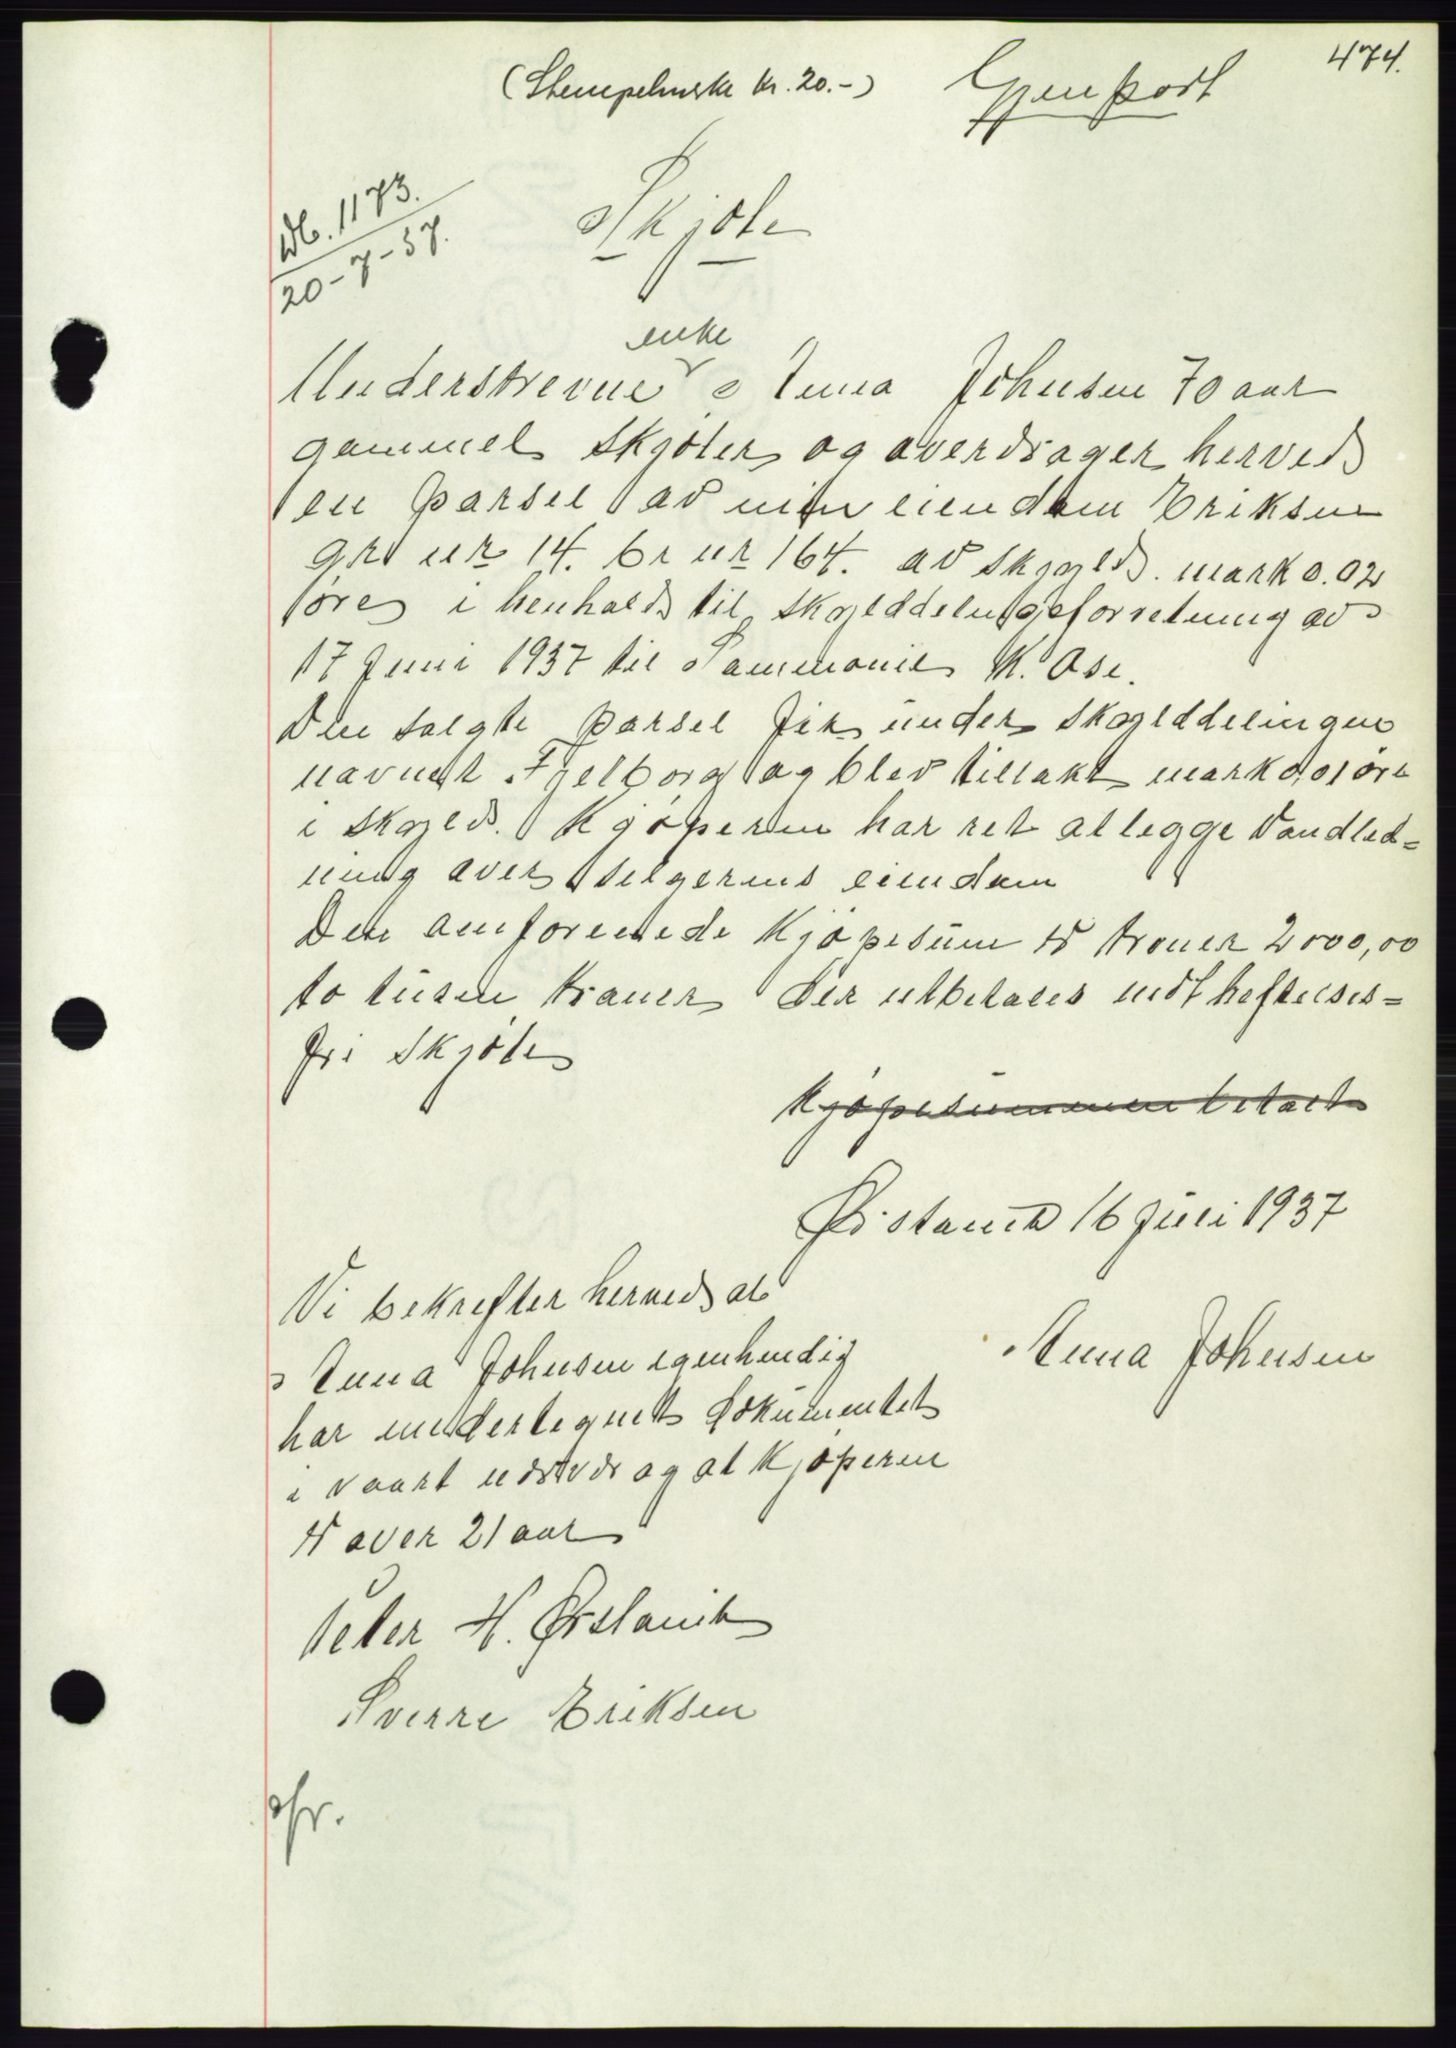 474.
(Stempelmerke kr. 20.-) Gjenpart
Db. 1173.
20-7-37.
Skjøte
enke
Underskrevne Anna Johnsen 70 aar
gammel skjøter og overdrager herved
en parsel av min eiendom Eriksen
gr nr 14. br nr 164. av skyld. mark 0.02
øre i henhold til skylddelingsforretning av
17 Juni 1937 til K. Ose.
Den solgte parsel fik under skylddelingen
navnet Fjelborg og blev tillakt mark 0,01 øre
i skyld. Kjøperen har ret at legge Vandled=
ning over selgerens eiendom
Den omforenede Kjøpesum er kroner 2000,00
to tusen kroner der utbetales mot heftelses=
fri Skjøte
Kjøpesummen betalt
Ørstavik 16 Juli 1937
Vi bekrefter herved at
Anna Johnsen egenhendig
har undertegnet dokumentet
i vaart nærvær og at Kjøperen
er over 21 aar
Anna Johnsen
Peter H. Ørstavik
Sverre Eriksen